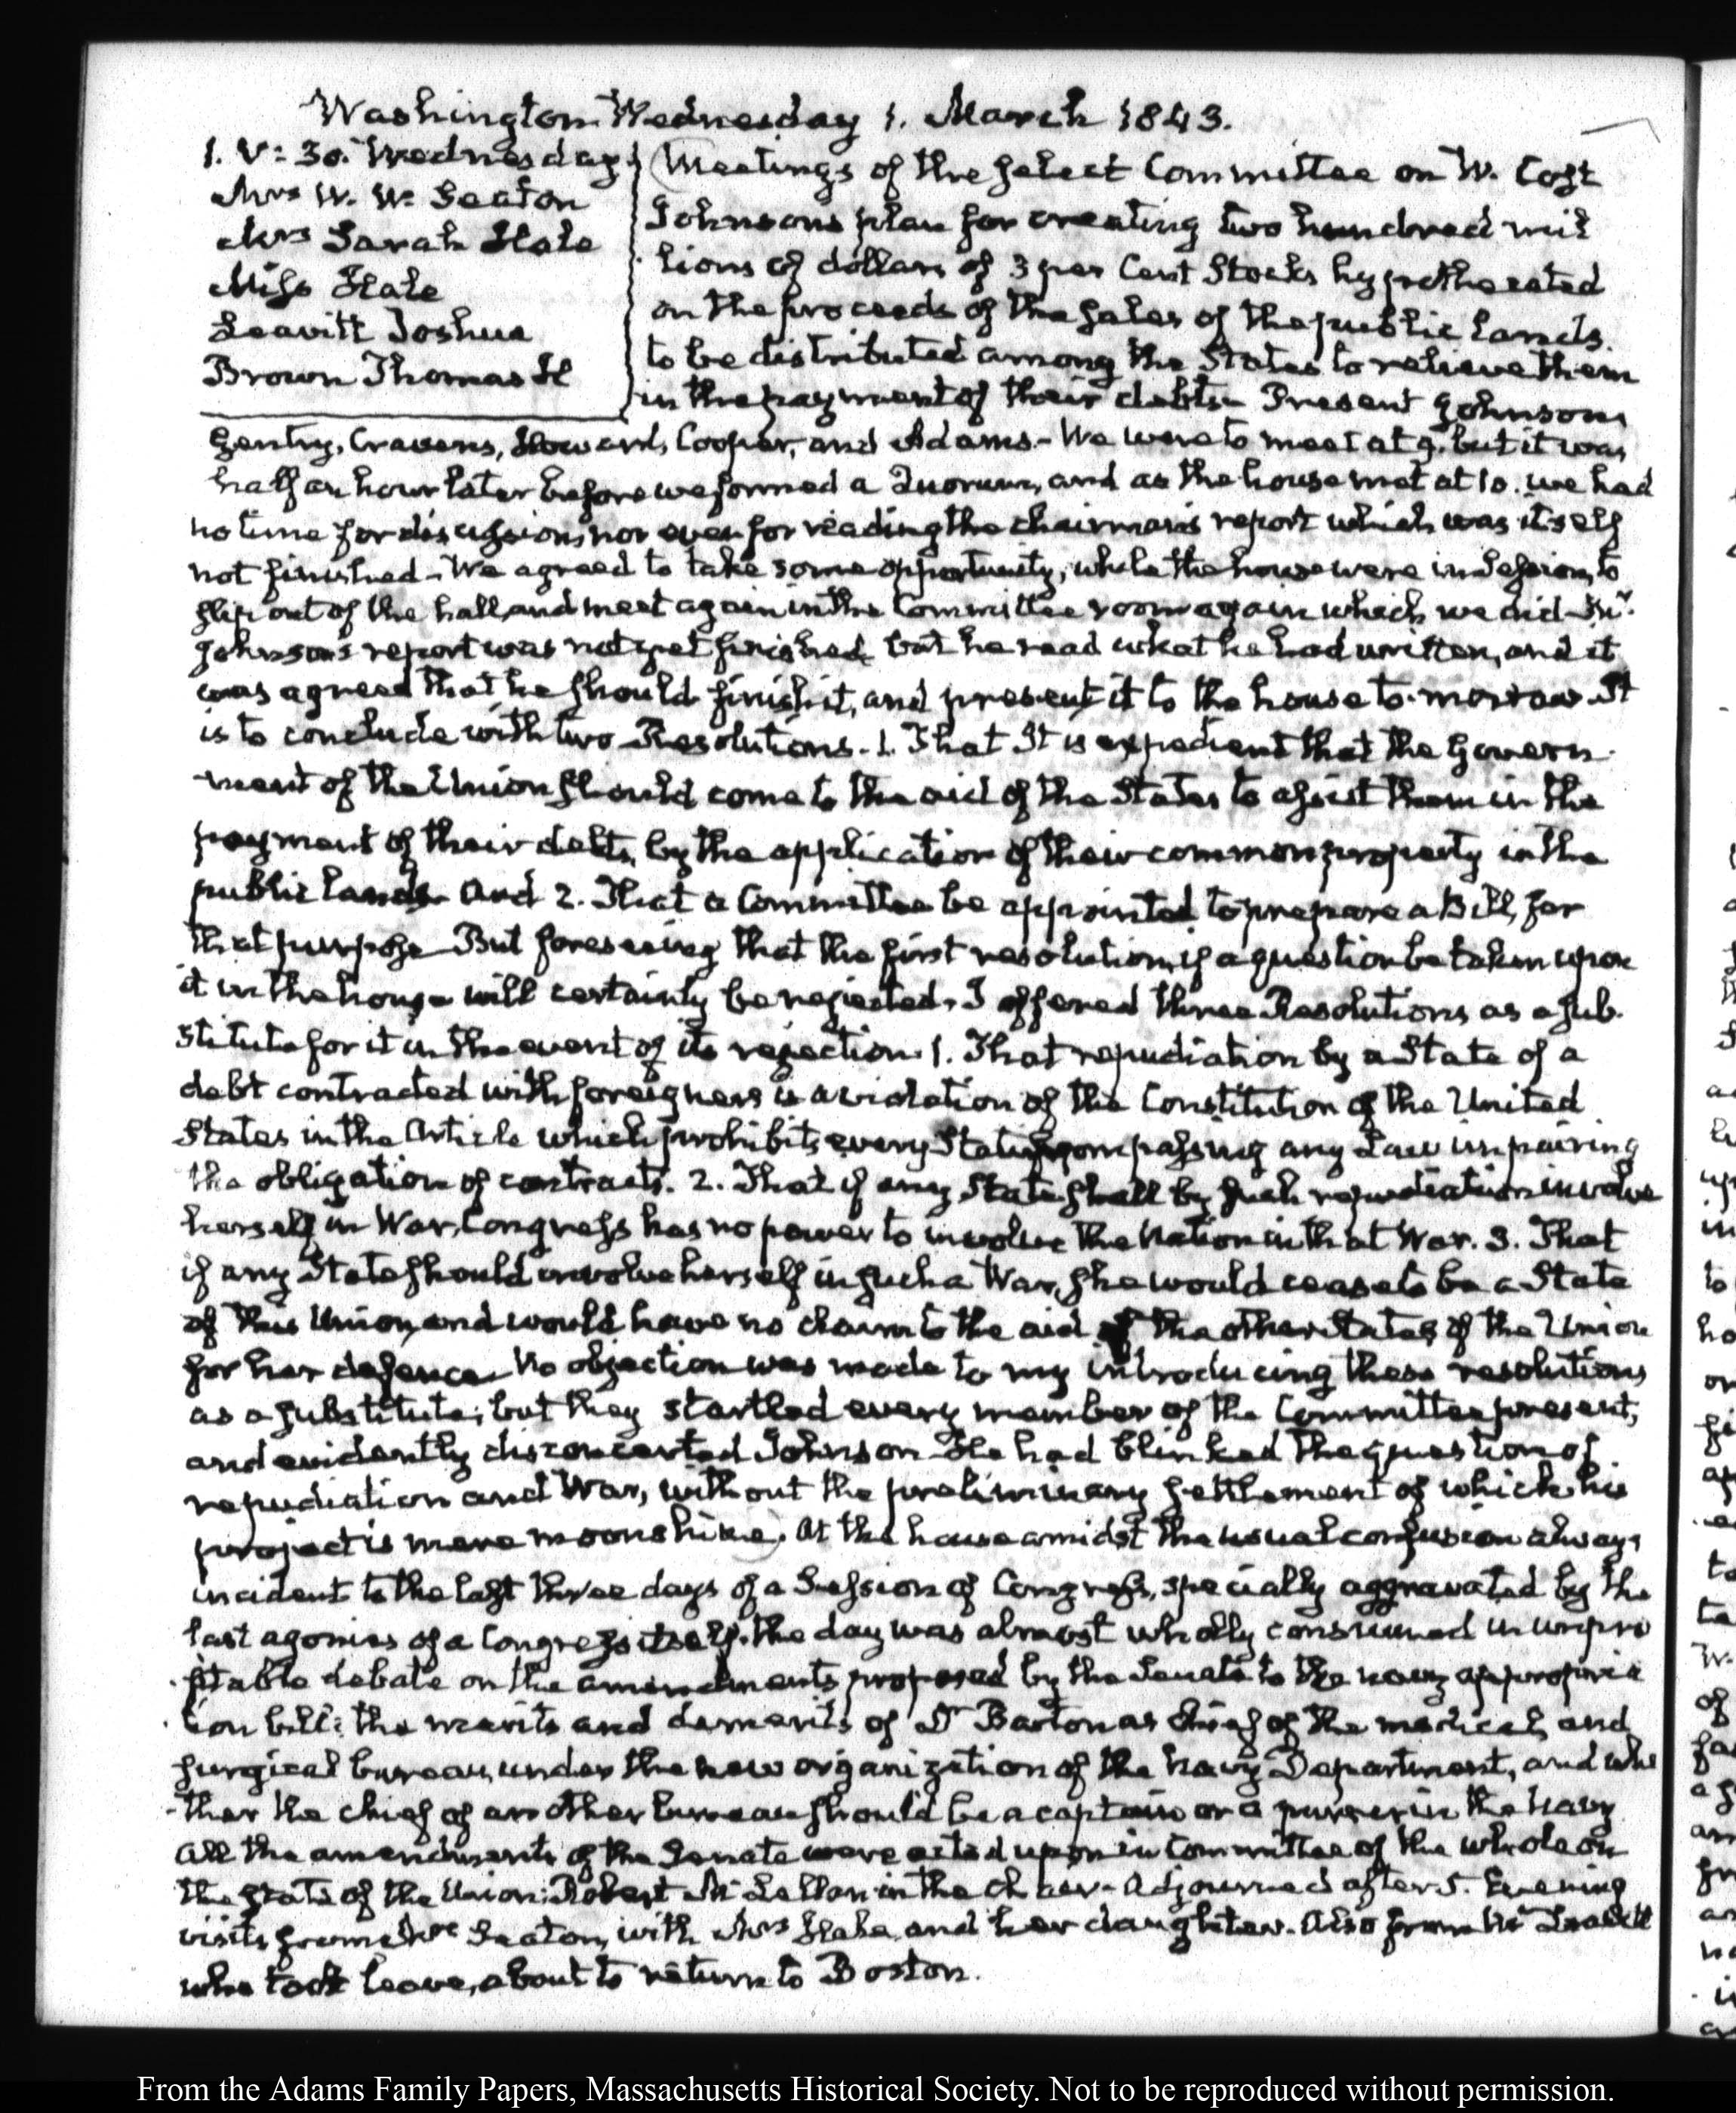 Washington Wednesday 1. March 1843.
1. V: 30. Wednesday
Mrs W. W. Seaton
Mrs Sarah Hale
Miss Hale
Leavitt Joshua
Brown Thomas H
Meetings of the select Committee on W. Cost
Johnsons plan for creating two hundred mil
lions of dollars of 3 per Cent Stocks hypothecated
on the proceeds of the sales of the public lands.
to be distributed among the States to relieve them
in the payment of their debts— Present Johnson,
Gentry, Cravens, Howard, Cooper, and Adams.— We were to meet at 9. but it was
half an hour later before we formed a Quorum, and as the house met at 10. we had
no time for discussion, nor even for reading the chairman's report which was itself
not finished— We agreed to take some opportunity, while the house were in Session, to
slip out of the hall, and meet again in the Committee room again which we did— Mr.
Johnson's report was not yet finished, but he read what he had written, and it
was agreed that he should finish it, and present it to the house to-morrow. It
is to conclude with two Resolutions. 1. That It is expedient that the Govern-
-ment of the Union should come to the aid of the States to assist them in the
payment of their debts, by the application of their common property in the
public lands— And 2. That a Committee be appointed to prepare a Bill, for
that purpose— But foreseeing that the first resolution, if a question be taken upon
it in the house will certainly be rejected, I offered three Resolutions as a sub-
stitute for it in the event of its rejection. 1. That repudiation by a State of a
debt contracted with foreigners is a violation of the Constitution of the United
States in the Article which prohibits every State from passing any Law impairing
the obligation of contracts. 2. That if any State shall by such repudiation involve
herself in War, Congress has no power to involve the Nation in that War. 3. That
if any State should involve herself in such a War, she would cease to be a State
of this Union, and would have no claim to the aid of the other States of the Union
for her defence— No objection was made to my introducing these resolutions
as a substitute; but they startled every member of the Committee present,
and evidently disconcerted Johnson— He had blinked the question of
repudiation and War, without the preliminary settlement of which his
project is mere moonshine. At the house amidst the usual confusion always
incident to the last three days of a Session of Congress, specially aggravated by the
last agonies of a Congress itself. the day was almost wholly consumed in unpro
fitable debate on the amendments proposed by the Senate to the navy appropria
tion bill: the merits and demerits of Dr Barton as chief of the medical and
surgical bureau, under the new organization of the Navy Department, and whe
-ther the chief of another bureau should be a captain or a purser in the Navy
All the amendments of the Senate were acted upon in Committee of the whole on
the state of the Union: Robert McLellan in the chair— Adjourned after 5. Evening
visits from Mrs Seaton, with Mrs Hale, and her daughter. Also from Mr Leavitt
who took leave, about to return to Boston.
From the Adams Family Papers, Massachusetts Historical Society. Not to be reproduced without permission.